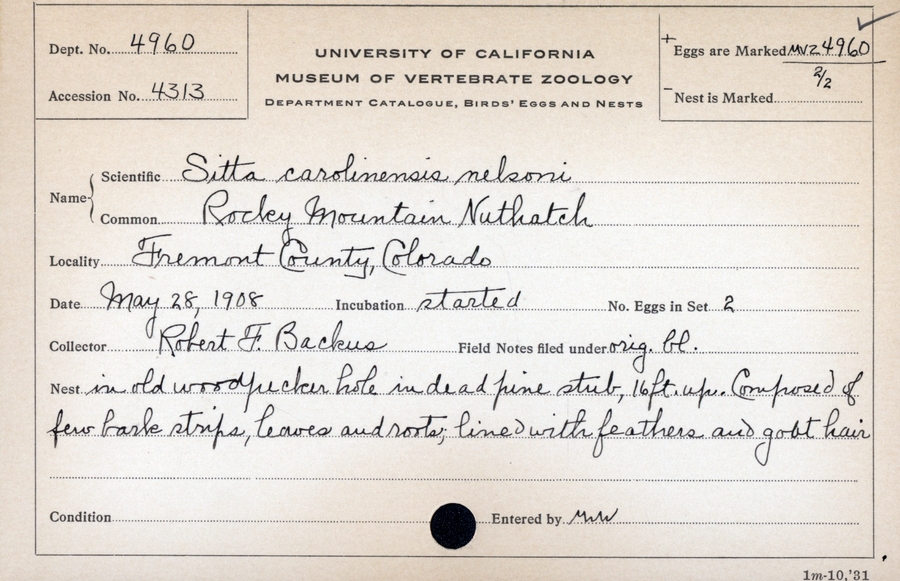 Dept. No. 4960
Accession No. 4313
UNIVERSITY OF CALIFORNIA
MUSEUM OF VERTEBRATE ZOOLOGY
DEPARTMENT CATALOGUE, BIRDS' EGGS AND NESTS
+ Eggs are Marked MVZ 4960
2/2
- Nest is Marked
Name { Scientific Sitta carolinensis nelsoni
Common Rocky Mountain Nuthatch
Locality Fremont County, Colorado
Date May 28, 1908 Incubation started No. Eggs in Set 2
Collector Robert F. Backus Field Notes filed under orig. bl.
Nest in old woodpecker hole in dead pine stub, 16 ft. up. Composed of
few bark strips, leaves and roots; lined with feathers and goat hair
Condition Entered by
1m-10,'31